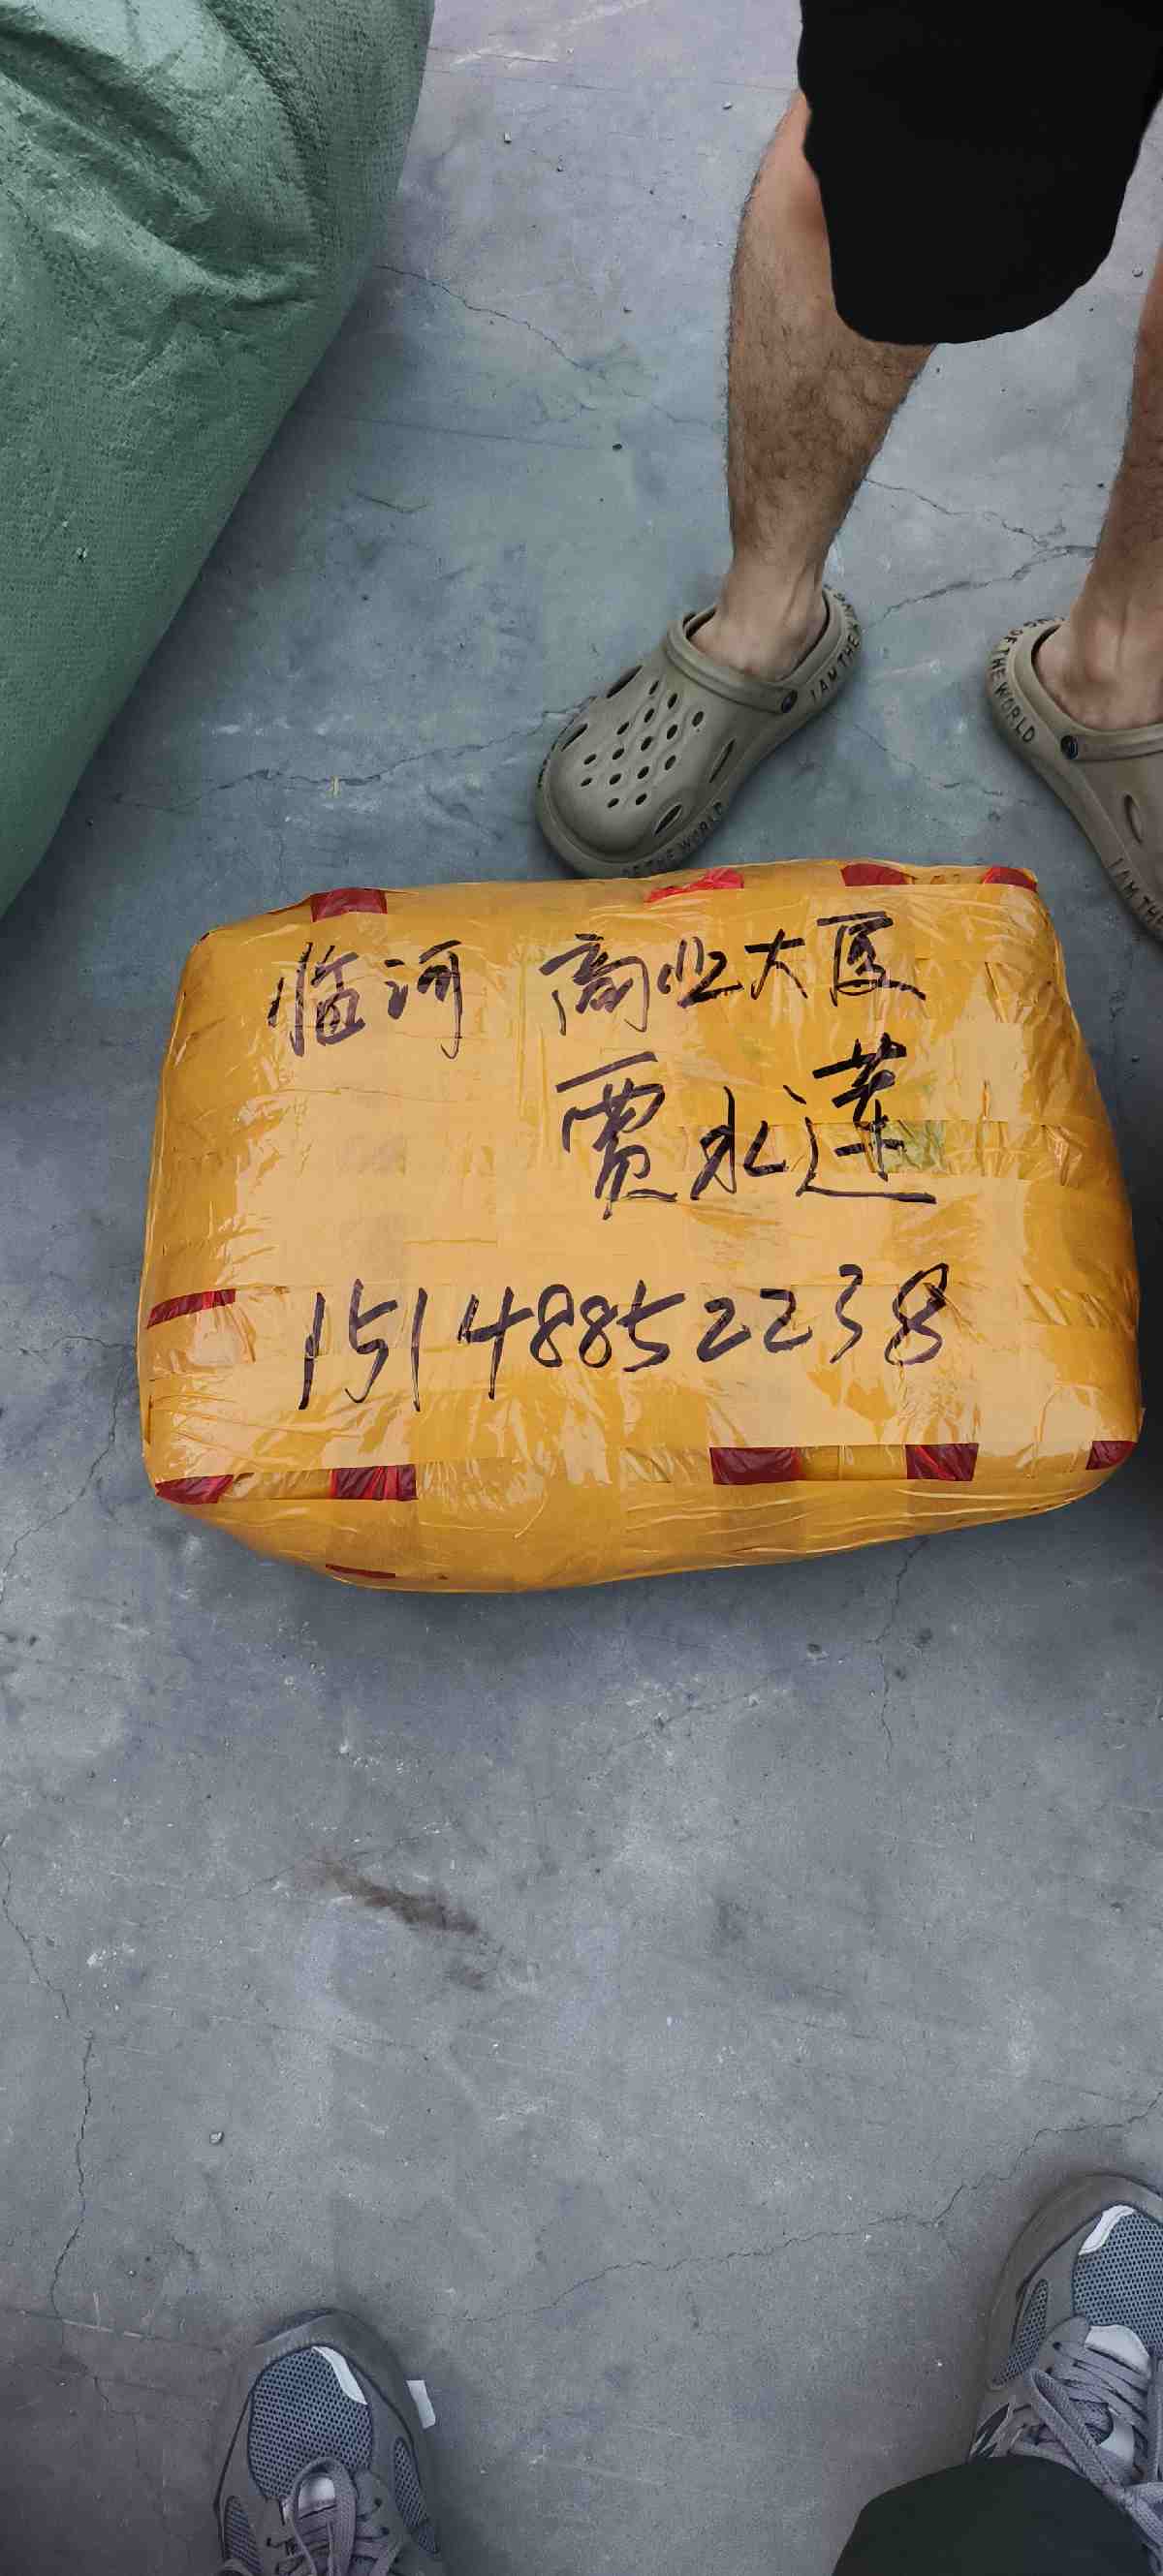 I AM THE
OF THE WORLD
OF THE WORLD
I AM THE
临河 商业大厦
贾永莲
15148852238